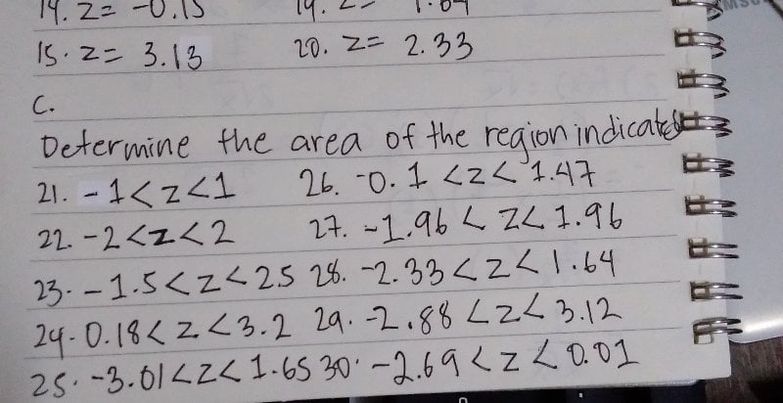 14. Z= -0.15 19. Z= 1.64
15. Z= 3.13 20. Z= 2.33
C.
Determine the area of the region indicated
21. -1<Z<1 26. -0.1 <Z< 1.47
22. -2<Z<2 27. -1.96 < Z< 1.96
23. -1.5<Z<2.5 28. -2.33<Z<1.64
24. 0.18<Z<3.2 29. -2.88 <Z<3.12
25. -3.01<Z<1.65 30. -2.69 <Z <0.01